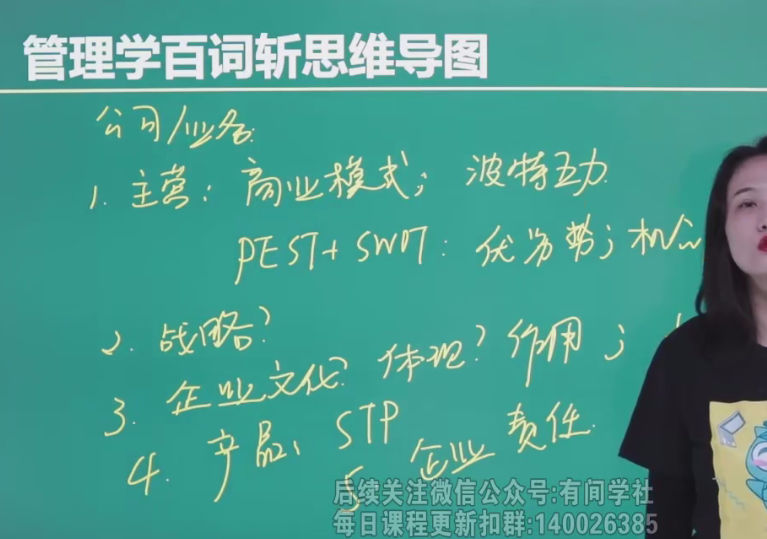 管理学百词斩思维导图
公司/业务
1. 主营: 商业模式; 波特五力
PEST+SWOT: 优劣势; 机会
2. 战略?
3. 企业文化? 体现? 作用;
4. 产品: STP
5 企业责任
后续关注微信公众号:有间学社
每日课程更新扣群:140026385